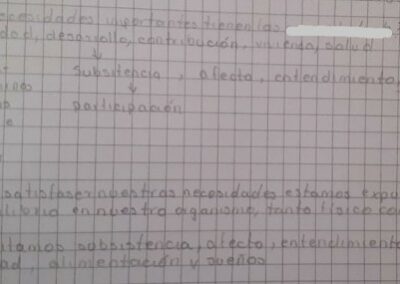 necesidades importantes tienen las
dad, desarrollo, contribución, vivienda, salud
subsitencia, afecto, entendimiento,
participación
satisfaser nuestras necesidades estamos expu
librio en nuestro organismo, tanto físico co
itamos subsistencia, afecto, entendimiento
ad, alimentación y sueños